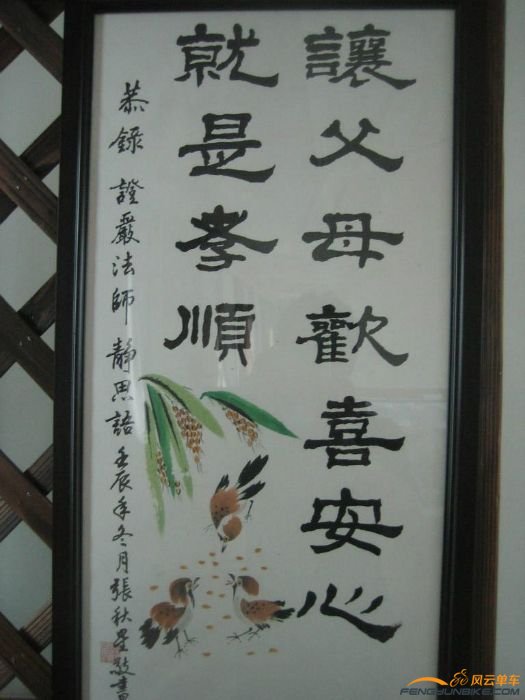 讓父母歡喜安心
就是孝順
恭錄證嚴法師靜思語壬辰年冬月張秋星敬書
风云单车
FENGYUNBIKE.COM